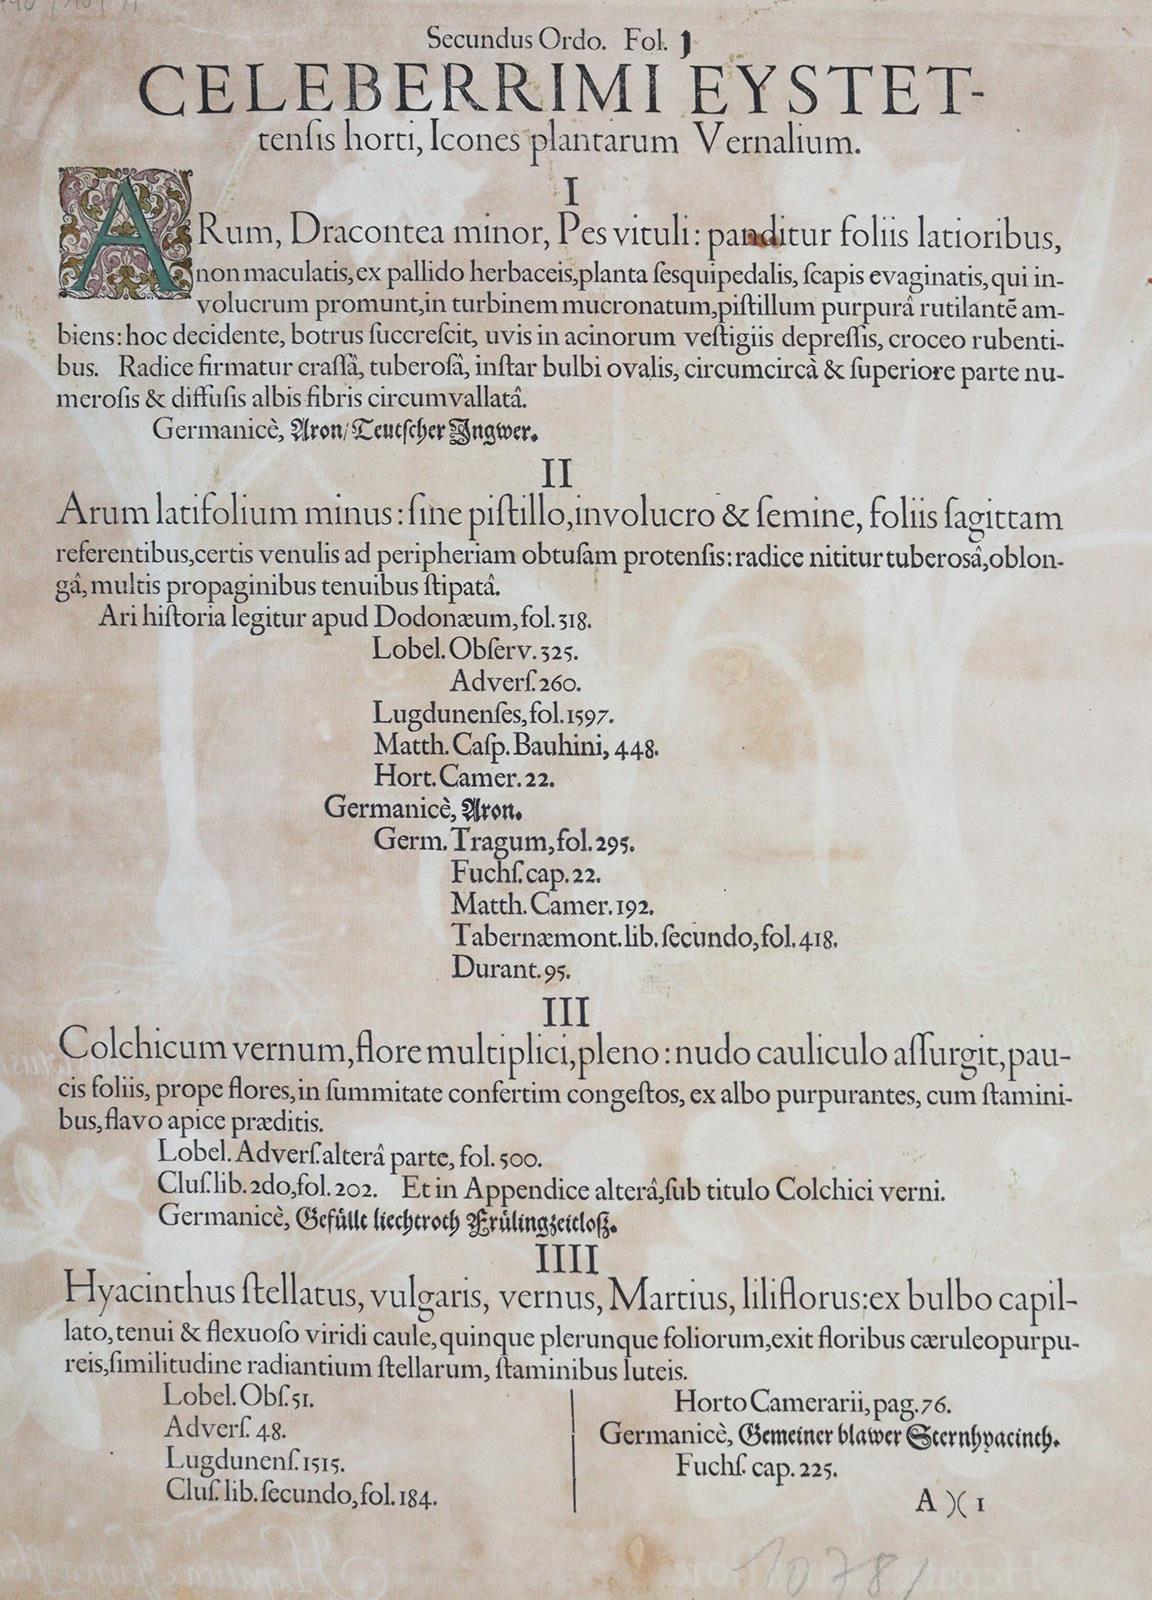 Secundus Ordo. Fol. 1
CELEBERRIMI EYSTET-
tenſis horti, Icones plantarum Vernalium.
I
ARum, Dracontea minor, Pes vituli: panditur foliis latioribus,
non maculatis, ex pallido herbaceis, planta ſesquipedalis, ſcapis evaginatis, qui in-
volucrum promunt, in turbinem mucronatum, piſtillum purpurâ rutilantē am-
biens: hoc decidente, botrus ſuccreſcit, uvis in acinorum veſtigiis depreſſis, croceo rubenti-
bus. Radice firmatur craſſâ, tuberoſâ, inſtar bulbi ovalis, circumcircà & ſuperiore parte nu-
meroſis & diffuſis albis fibris circumvallatâ.
Germanicè, Aron/Teutſcher Ingwer.
II
Arum latifolium minus: ſine piſtillo, involucro & ſemine, foliis ſagittam
referentibus, certis venulis ad peripheriam obtuſam protenſis: radice nititur tuberosâ, oblon-
gâ, multis propaginibus tenuibus ſtipatâ.
Ari hiſtoria legitur apud Dodonæum, fol. 318.
Lobel. Obſerv. 325.
Adverſ. 260.
Lugdunenſes, fol. 1597.
Matth. Caſp. Bauhini, 448.
Hort. Camer. 22.
Germanicè, Aron.
Germ. Tragum, fol. 295.
Fuchſ. cap. 22.
Matth. Camer. 192.
Tabernæmont. lib. ſecundo, fol. 418.
Durant. 95.
III
Colchicum vernum, flore multiplici, pleno: nudo cauliculo aſſurgit, pau-
cis foliis, prope flores, in ſummitate confertim congeſtos, ex albo purpurantes, cum ſtamini-
bus, flavo apice præditis.
Lobel. Adverſ. alterâ parte, fol. 500.
Cluſ. lib. 2do, fol. 202. Et in Appendice alterâ, ſub titulo Colchici verni.
Germanicè, Gefüllt liechtroth Frülingzeitloß.
IIII
Hyacinthus ſtellatus, vulgaris, vernus, Martius, liliflorus: ex bulbo capil-
lato, tenui & flexuoſo viridi caule, quinque plerunque foliorum, exit floribus cæruleopurpu-
reis, ſimilitudine radiantium ſtellarum, ſtaminibus luteis.
Lobel. Obſ. 51.
Adverſ. 48.
Lugdunenſ. 1515.
Cluſ. lib. ſecundo, fol. 184.
Horto Camerarii, pag. 76.
Germanicè, Gemeiner blawer Sternhyacinth.
Fuchſ. cap. 225.
A )( 1
1078/